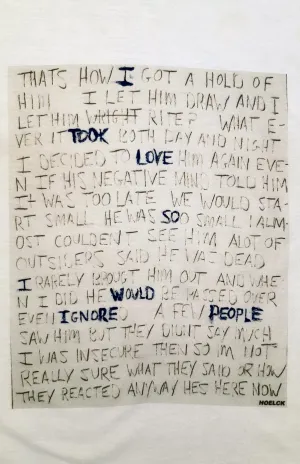 THATS HOW I GOT A HOLD OF
HIM I LET HIM DRAW AND I
LET HIM WRIGHT RITE? WHAT E-
VER IT TOOK BOTH DAY AND NIGHT
I DECIDED TO LOVE HIM AGAIN EVE-
N IF HIS NEGATIVE MIND TOLD HIM
IT WAS TOO LATE WE WOULD STA-
RT SMALL HE WAS SO SMALL I ALM-
OST COULDENT SEE HIM ALOT OF
OUTSIDERS SAID HE WAS DEAD
I RARELY BROUGT HIM OUT AND WHE-
N I DID HE WOULD BE PASSED OVER
EVEN IGNORED A FEW PEOPLE
SAW HIM BUT THEY DIDNT SAY MUCH
I WAS INSECURE THEN SO IM NOT
REALLY SURE WHAT THEY SAID OR HOW
THEY REACTED ANYWAY HES HERE NOW
NOELCK